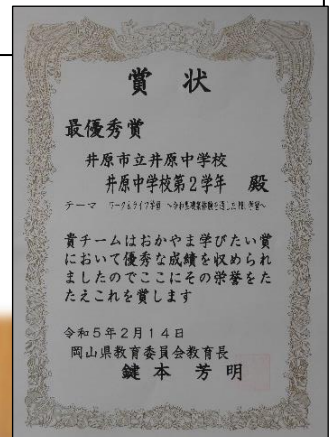 賞状
最優秀賞
井原市立井原中学校
井原中学校第2学年 殿
テーマ
貴チームはおかやま学びたい賞
において優秀な成績を収められ
ましたのでここにその栄誉をた
たえこれを賞します
令和5年2月14日
岡山県教育委員会教育長
鍵本芳明